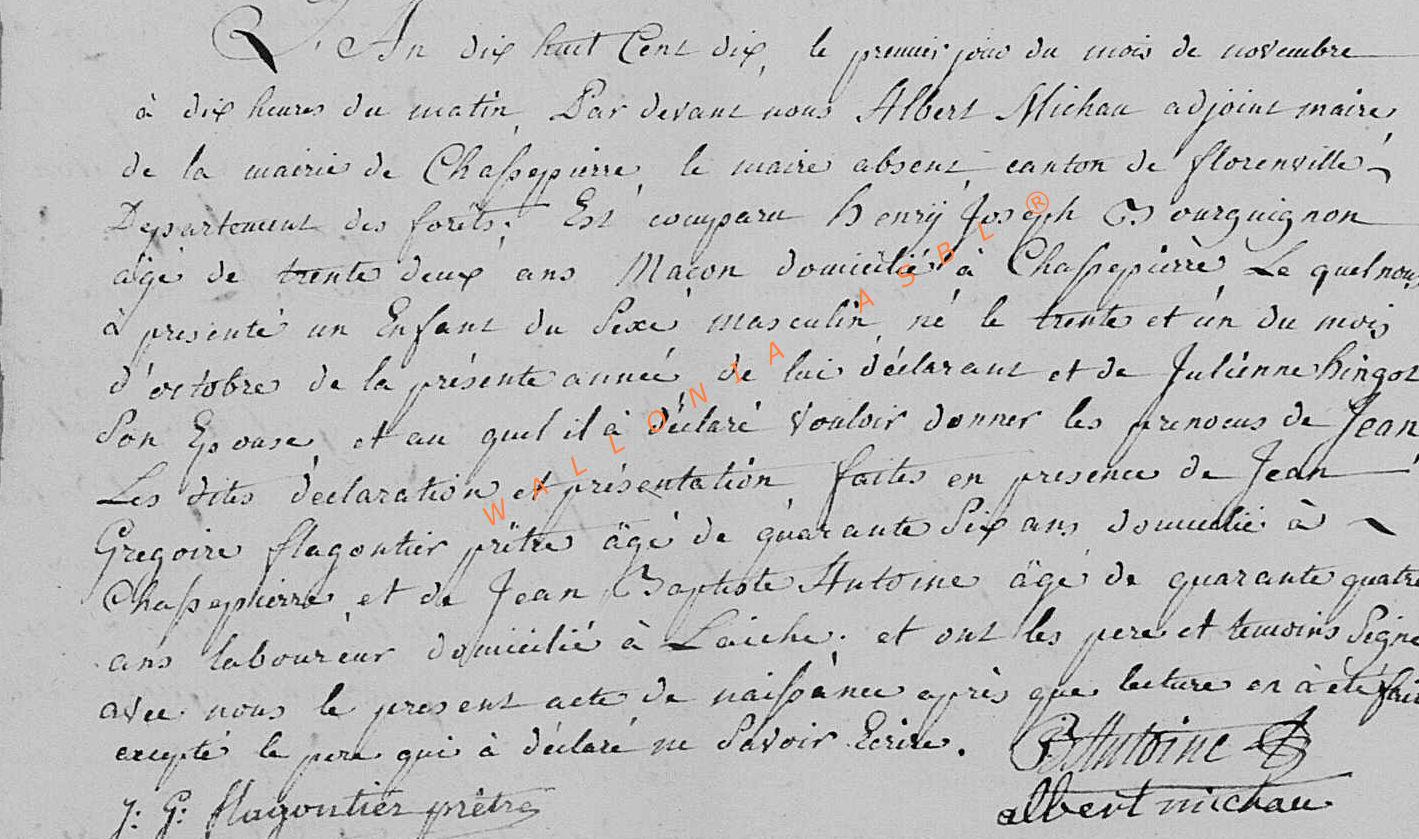 L'An dix huit Cent dix, le premier jour du mois de novembre
à dix heures du matin, Par devant nous Albert Michau adjoint maire
de la mairie de Chassepierre, le maire absent, canton de florenville
Departement des forêts. Est comparu henrÿ Joseph Bourguignon
âgé de trente deux ans Maçon domicilié à Chassepierre Le quel nous
à presenté un Enfant du Sexe masculin, né le trente et un du mois
d'octobre de la présente année, de lui déclarant et de Julienne hingot
Son Epouse, et au quel il à déclaré Vouloir donner les prenoms de Jean
Les dites déclaration et présentation faites en presence de Jean
Gregoire flagontier prêtre âgé de quarante Six ans domicilié à
Chassepierre, et de Jean Baptiste Antoine âgé de quarante quatre
ans laboureur domicilié à Laiche. et ont les pere et temoins Signé
avec nous le present acte de naissance après que lecture en à été fait
excepté le pere qui à déclaré ne Savoir Ecrire.
JB Antoine
J: G: flagontier prêtre
albert michau
WALLONIA ASBL ®